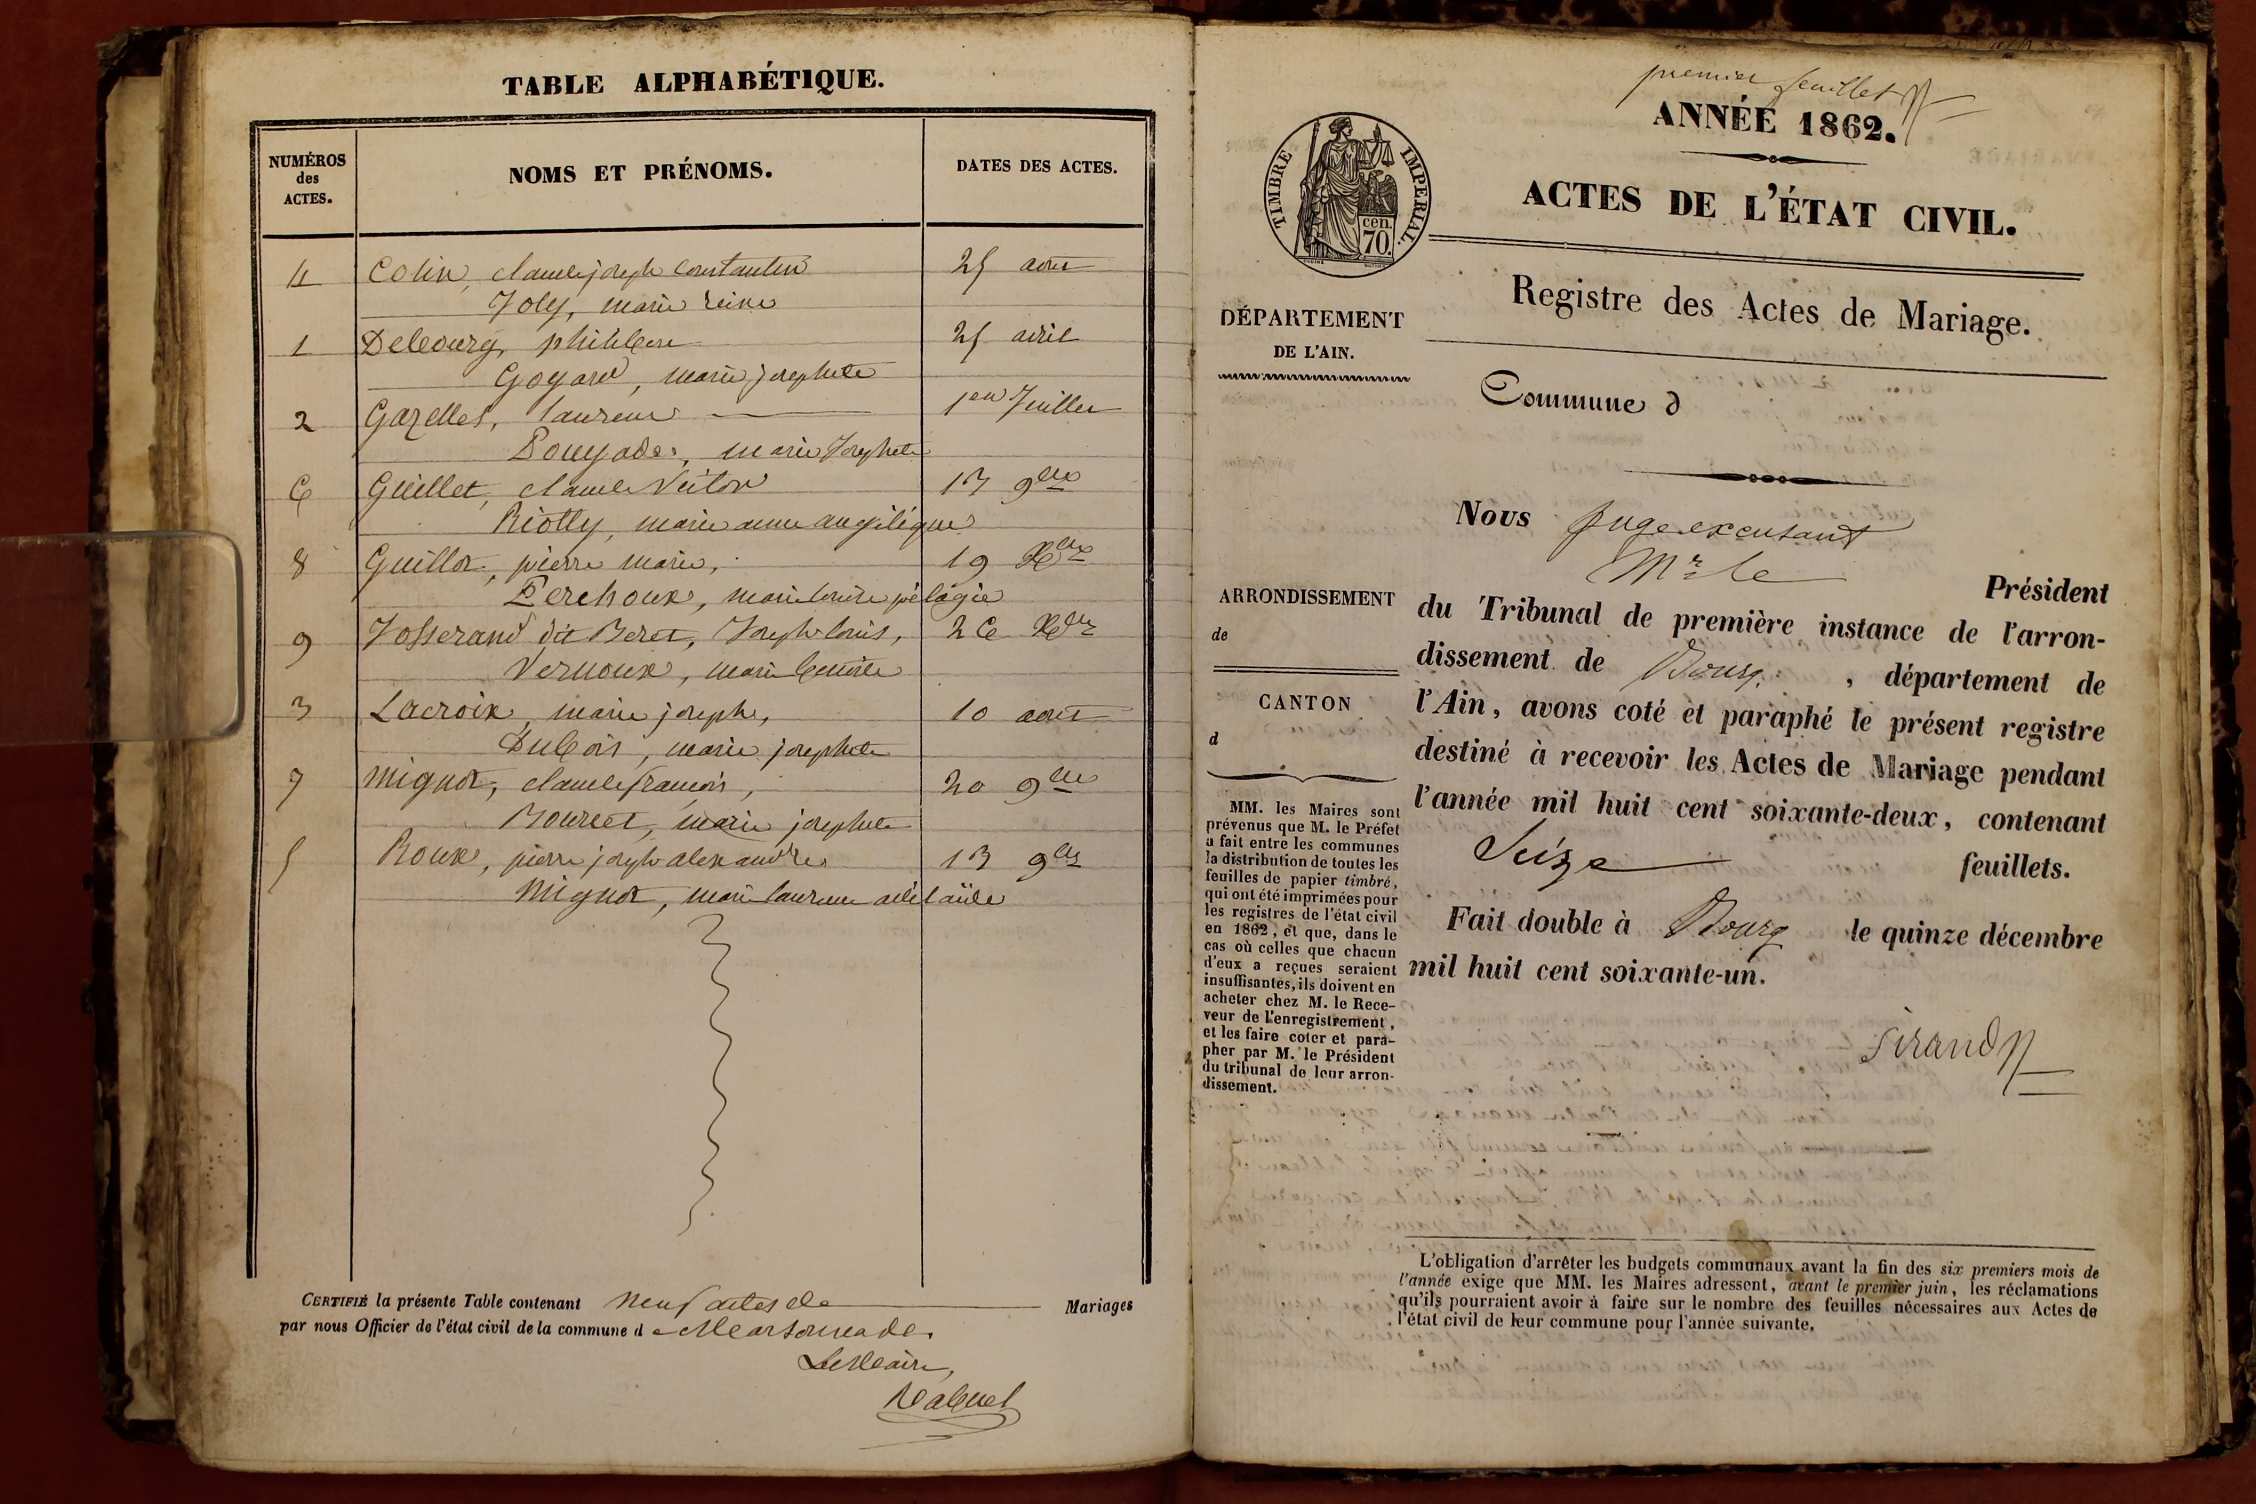 TABLE ALPHABÉTIQUE.
NUMÉROS
des
ACTES.
NOMS ET PRÉNOMS.
DATES DES ACTES.
4 Colin, claude joseph constantin 25 aout
Joly, marie reine
1 Debourg, philibert 25 avril
Goyard, marie josephete
2 Gazelles, laurent 1er Juillet
Pouyade, marie Josephete
6 Guillet, claude Victor 13 9bre
Riotty, marie anne angélique
8 Guillot, pierre marie, 19 Xbre
Perchoux, marie louise pélagie
9 Josserand dit Beret, Joseph louis, 26 Xbre
Vernoux, marie
3 Lacroix, marie joseph, 10 aout
Dubois, marie josephete
7 Mignot, claude françois, 20 9bre
Bourcet, marie josephete
5 Roux, pierre joseph alexandre 13 9bre
Mignot, marie laurence adélaïde
CERTIFIÉ la présente Table contenant neuf actes de Mariages
par nous Officier de l'état civil de la commune d e Marsonnas
Le Maire,
premier feuillet
ANNÉE 1862.
TIMBRE IMPERIAL.
cen.
70.
ACTES DE L'ÉTAT CIVIL.
Registre des Actes de Mariage.
DÉPARTEMENT
DE L'AIN.
Commune d
Nous Juge excusant
Mr le Président
ARRONDISSEMENT
de
CANTON
d
du Tribunal de première instance de l'arron-
dissement de Bourg, département de
l'Ain, avons coté et paraphé le présent registre
destiné à recevoir les Actes de Mariage pendant
l'année mil huit cent soixante-deux, contenant
Seize feuillets.
Fait double à Bourg le quinze décembre
mil huit cent soixante-un.
Sirand
MM. les Maires sont
prévenus que M. le Préfet
a fait entre les communes
la distribution de toutes les
feuilles de papier timbré,
qui ont été imprimées pour
les registres de l'état civil
en 1862, et que, dans le
cas où celles que chacun
d'eux a reçues seraient
insuffisantes, ils doivent en
acheter chez M. le Rece-
veur de l'enregistrement,
et les faire coter et para-
pher par M. le Président
du tribunal de leur arron-
dissement.
L'obligation d'arrêter les budgets communaux avant la fin des six premiers mois de
l'année exige que MM. les Maires adressent, avant le premier juin, les réclamations
qu'ils pourraient avoir à faire sur le nombre des feuilles nécessaires aux Actes de
l'état civil de leur commune pour l'année suivante.